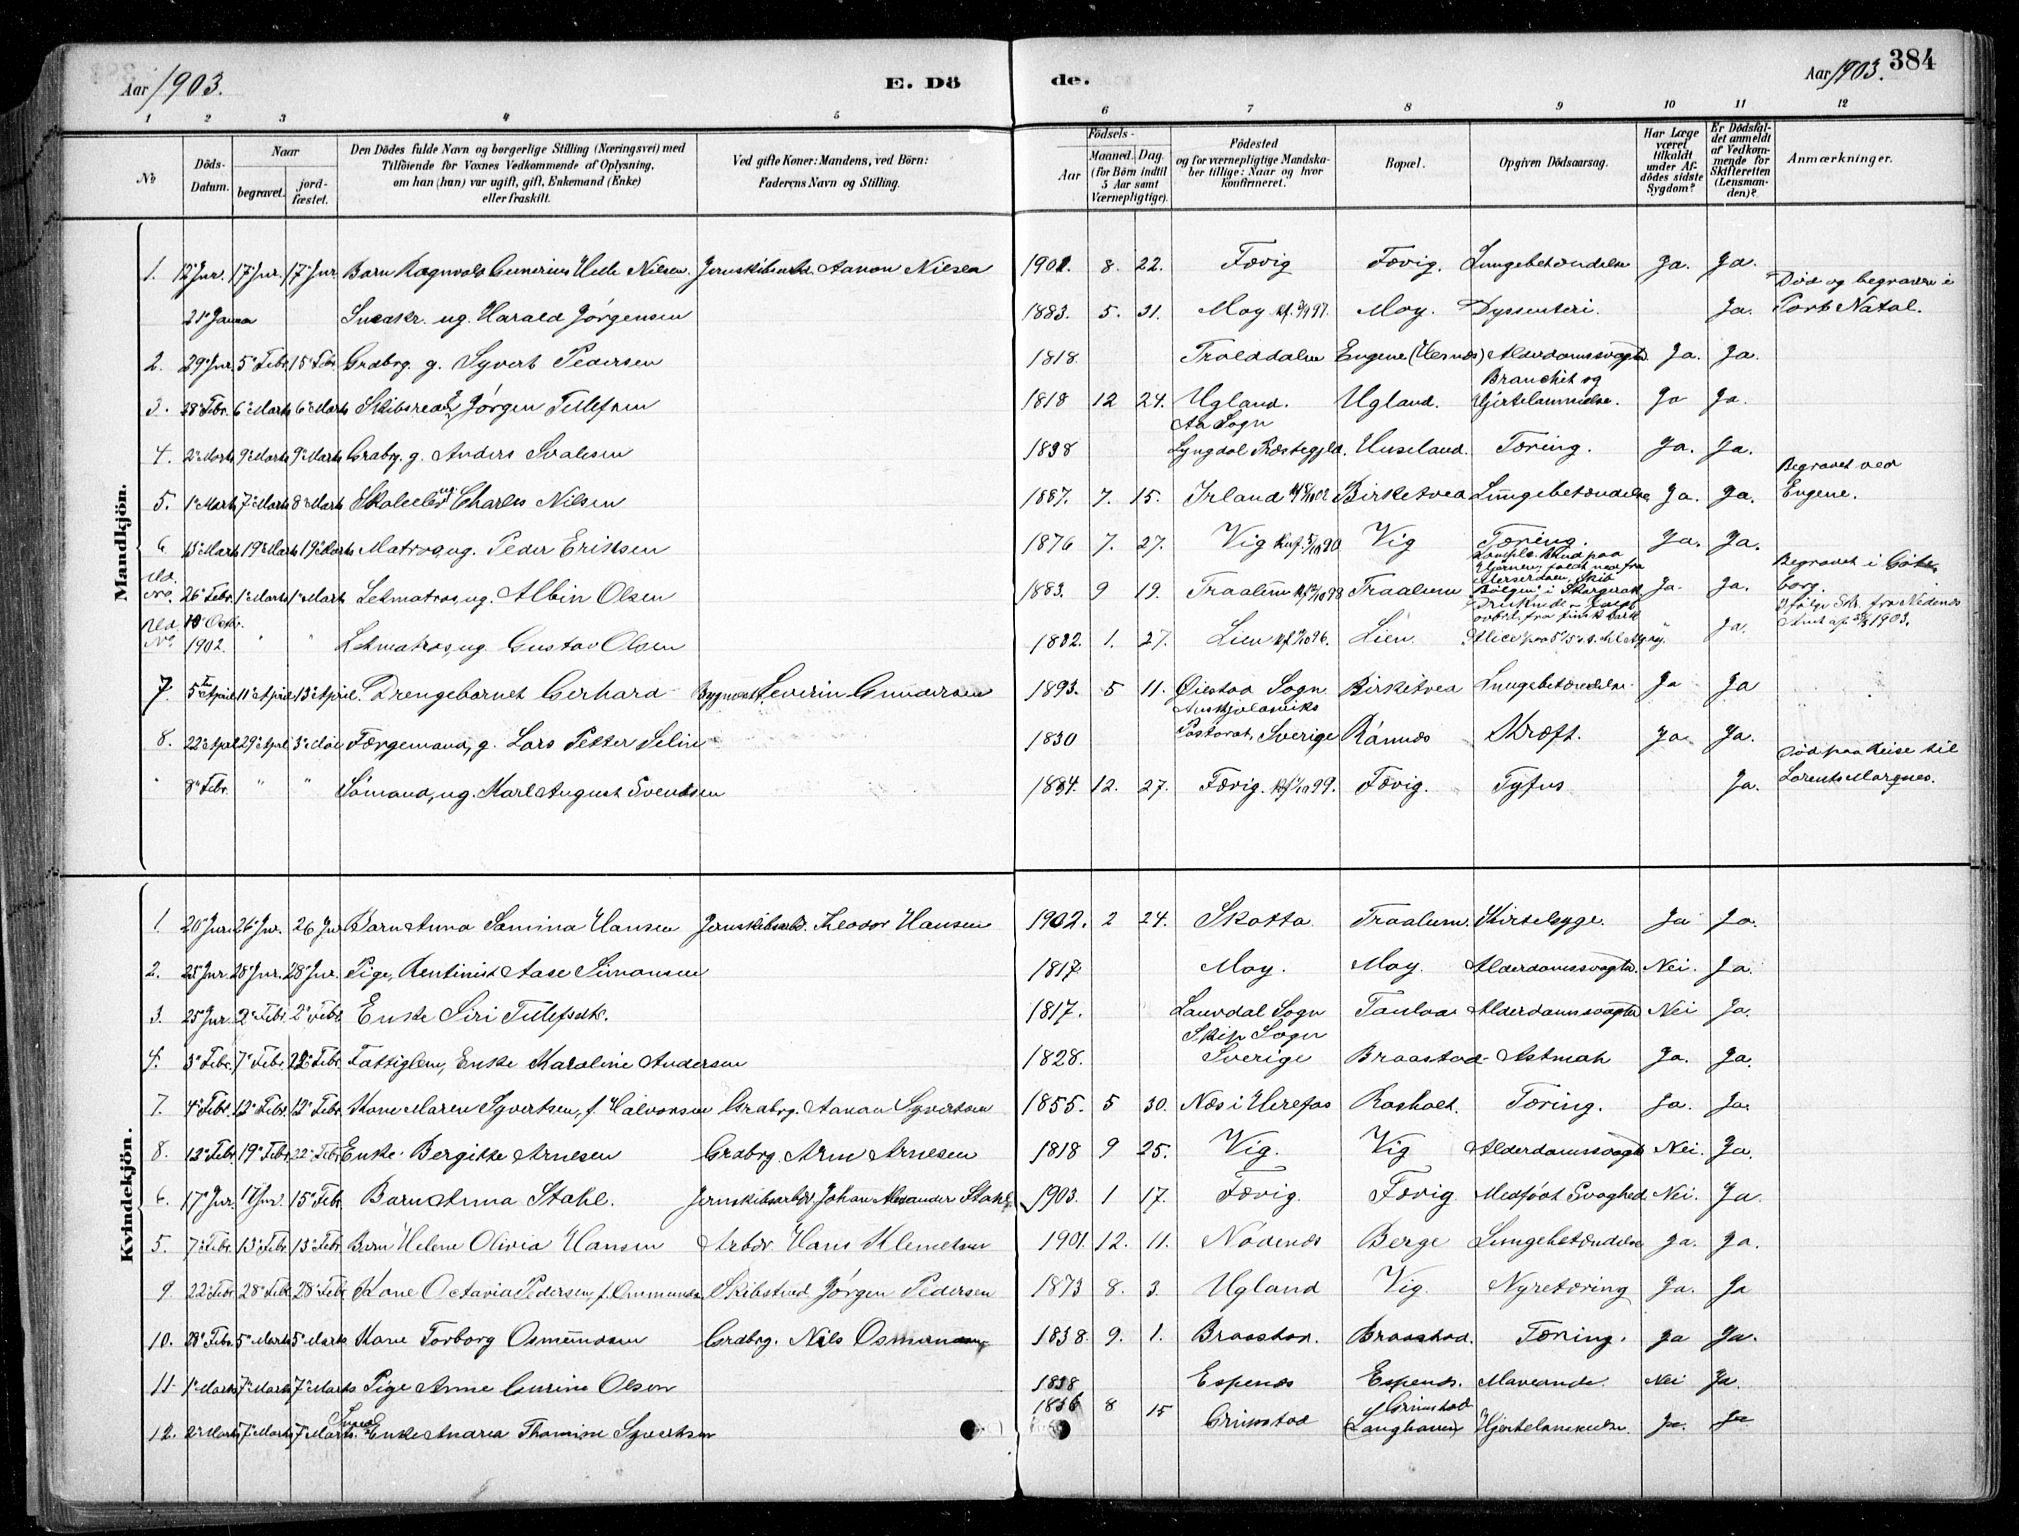 Aar 1903.
E. Dö
de.
Aar 1903.
384
1 2 3 4 5 6 7 8 9 10 11 12
No
Döds-Datum.
Naar
begravet.
jord-fæstet.
Den Dödes fulde Navn og borgerlige Stilling (Næringsvei) med
Tilföiende for Voxnes Vedkommende af Oplysning,
om han (hun) var ugift, gift, Enkemand (Enke)
eller fraskilt.
Ved gifte Koner: Mandens, ved Börn:
Faderens Navn og Stilling.
Födsels-
Aar
Maaned. Dag.
(for Börn indtil
5 Aar samt
Værnepligtige).
Födested
og for værnepligtige Mandska-
ber tillige: Naar og hvor
konfirmeret.
Bopæl.
Opgiven Dödsaarsag.
Har Læge
været
tilkaldt
under Af-
dödes sidste
Sygdom?
Er Dödsfal-
det anmeldt
af Vedkom-
mende for
Skifteretten
(Lensman-
den)?
Anmærkninger.
Mandkjön.
1. 12 Jnr. 17 Jnr. 17 Jnr. Barn Ragnvald Gunerius Helle Nilsen. Jernskibsarb. Aanon Nilsen 1901. 8. 22. Fævig Fævig. Lungebetændelse Ja. Ja.
21 Janua Snedkr. ug. Harald Jørgensen 1883. 5. 31. Moy Moy. Dyssenteri. Ja. Död og begraven i Port Natal.
2. 29 Jnr. 5 Febr. 15 Febr. Grdbrg. g. Syvert Pedersen 1818. Trolddalen Engene (Hesnæs) Alderdomssvaghd Ja. Ja.
3. 28 Febr. 6 Marts 6 Marts Skibsred. Jørgen Tellefsen 1818 12 24. Ugland. Ugland. Bronchit og Hjertelammelse. Ja Ja.
4. 2 Marts 9 Marts 9 Marts Grdbrg. g. Anders Svalesen 1838 Aa Sogn Lyngdal Præstegjeld. Huseland. Tæring. Ja. Ja.
5. 1 Marts 7 Marts 8 Marts Skoleelev ug. Charles Nilsen 1887. 7. 15. Irland Birketved Lungebetændelse Ja. Ja. Begravet ved Engene.
6. 13 Marts 19 Marts 19 Marts Matros, ug. Peder Eriksen 1876 7. 27. Vig Konf. 5/10 90 Vig Tæring. Ja. Ja.
26 Febr. 1 Marts 1 Marts Letmatros, ug. Albin Olsen 1883. 9 19. Traalum Traalum Ja. Ja. Begravet i Göteborg.
10 Octbr. 1902. " " Letmatros, ug. Gustav Olsen 1882. 1. 27. Lien Lien. " Ja. Ifølge Skr. fra Nedenæs Amt 1903.
7. 5 April 11 April 13 April. Drengebarnet Gerhard Severin Gundersen 1893. 5 11. Øiestad Sogn Birketved Lungebetændelse. Ja Ja
8. 22 April 29 April 3 Mai Færgemand, g. Lars Petter Selin 1830 Pastorat, Sverige Rönnes Kræft. Ja. Ja.
" 8 Febr. " " Sömand, ug. Karl August Svendsen 1884. 12. 27. Fævig. Fævig. Tyfus Ja. Död paa Reise til Lorents Marques.
Kvindekjön.
1. 20 Jnr. 26 Jnr. 26 Jnr Barn Anna Samina Hansen Jernskibsarb. Theodor Hansen 1902. 2 24. Skotta Traalum. Kirtelsyge. Ja Ja.
2. 25 Jnr. 28 Jnr. 28 Jnr. Pige, Rentinist Aase Simonsen 1817 Moy. Moy. Alderdomssvaghd. Nei. Ja.
3. 25 Jnr. 2 Febr. 2 Febr. Enke Siri Tellefsdtr. 1817. Laurdal Sogn Alderdomssvaghd Nei Ja.
4. 3 Febr. 7 Febr. 22 Febr. Fattiglem, Enke Karoline Andersen 1828. Skip Sogn Sverige Braastad Astmah Ja. Ja.
7. 4 Febr. 12 Febr. 12 Febr. Kone Maren Syvertsen, f. Halvorsen Grdbrg. Aanon Syvertsen 1855. 5 30. Næs i Herefos Rosholt. Tæring. Ja. Ja.
8. 13 Febr. 19 Febr. 22 Febr Enke Bergitte Arnesen Grdbrg. Arne Arnesen 1818 9 25. Vig. Vig Alderdomssvaghd Nei. Ja.
6. 17 Jnr. 17 Jnr. 15 Febr. Barn Anna Stahl. Jernskibsarbdr. Johan Alexander Stahl 1903. 1 17. Fævig. Fævig Medfödt Svaghed Nei. Ja.
5. 7 Febr. 13 Febr 13 Febr. Barn Helene Olivia Hansen Arbdr. Hans Klemetsen 1901. 12. 11. Nödenæs Berge Lungebetændelse Ja. Ja.
9. 22 Febr. 28 Febr 28 Febr Kone Octavia Pedersen, f. Omundsen, Skibstmd. Jørgen Pedersen 1873 8. 3. Ugland Vig. Nyretæring Ja. Ja
10. 28 Febr. 5 Marts 5 Marts Kone Torborg Osmundsen Grdbrg. Nils Osmundsen 1838. 9. 1. Braastad. Braastad. Tæring. Ja Ja.
11. 1 Marts 7 Marts 7 Marts Pige Anne Gurine Olsen 1838 Espenæs Espenæs. Maveonde. Nei Ja.
12. 2 Marts 7 Marts 7 Marts. Enke Andrea Thomine Syvertsen 1836 8 15 Grimstad Grimstad (Langhaven) Hjertelammelse. Ja. Ja